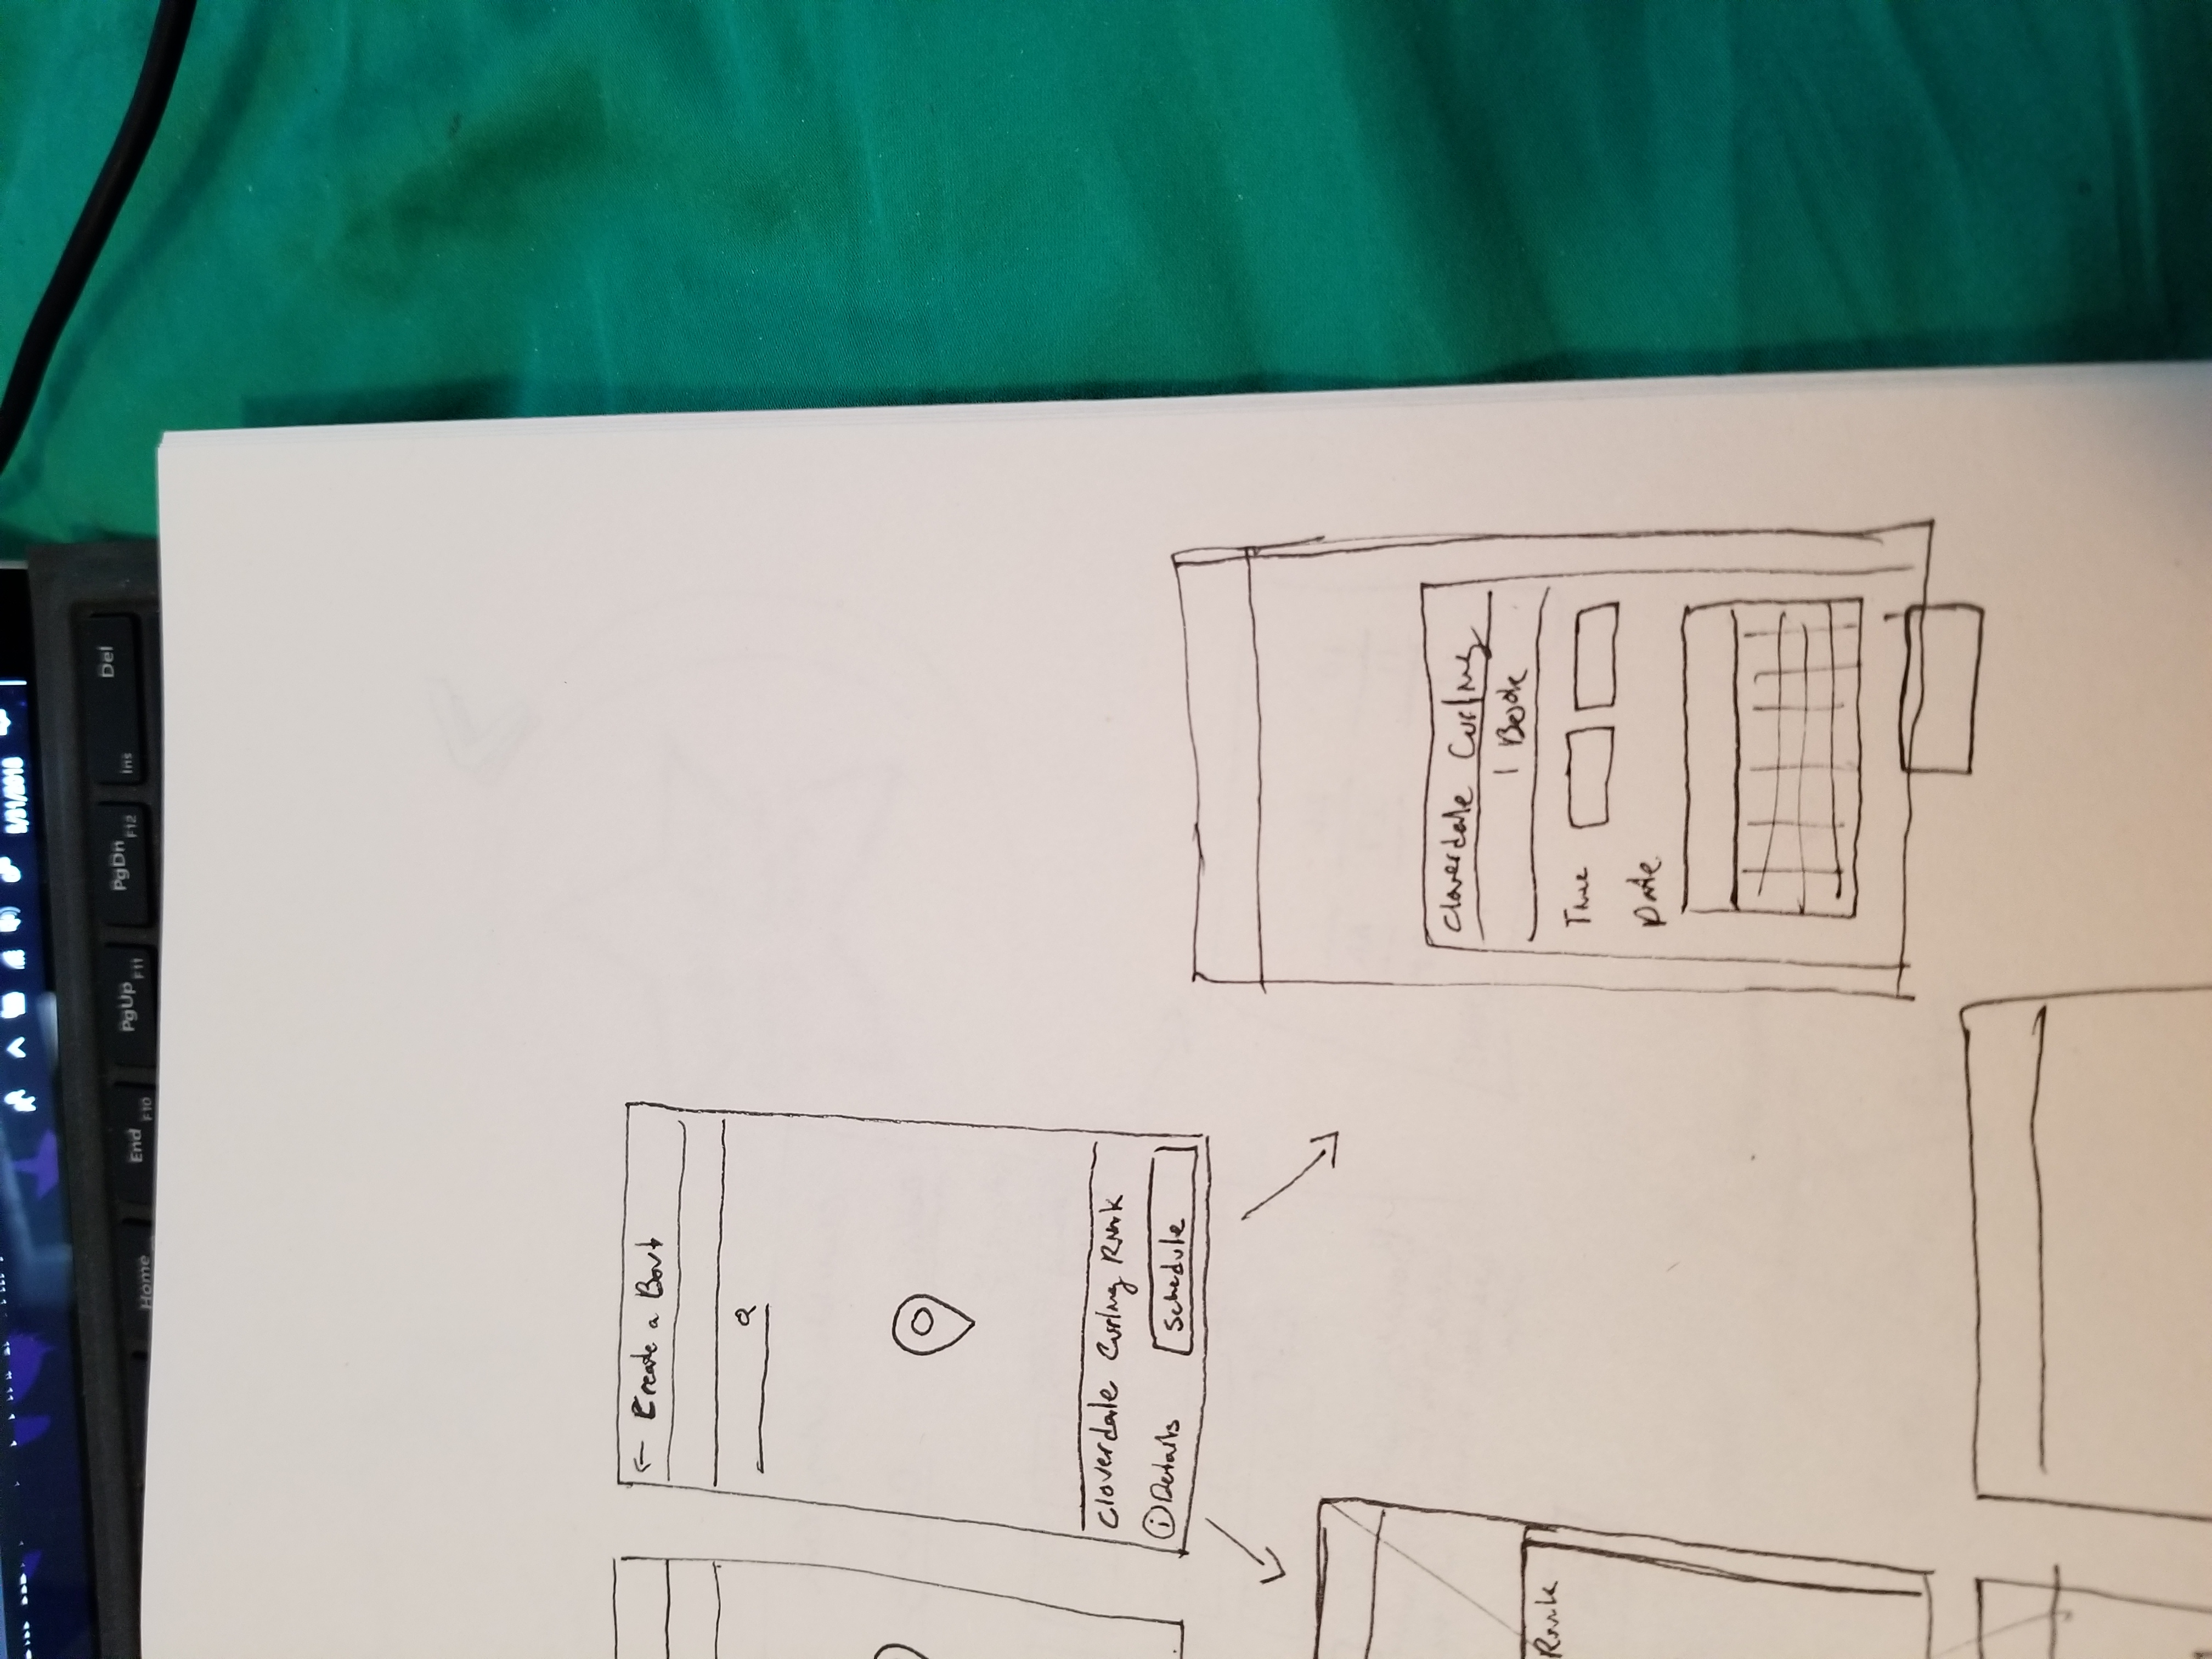 Home
End F10
PgUp F11
PgDn F12
Ins Del
← Create a Bout
Cloverdale Curling Rink
i Details
Schedule
Rink
Cloverdale Curling
| Book
Time
Date